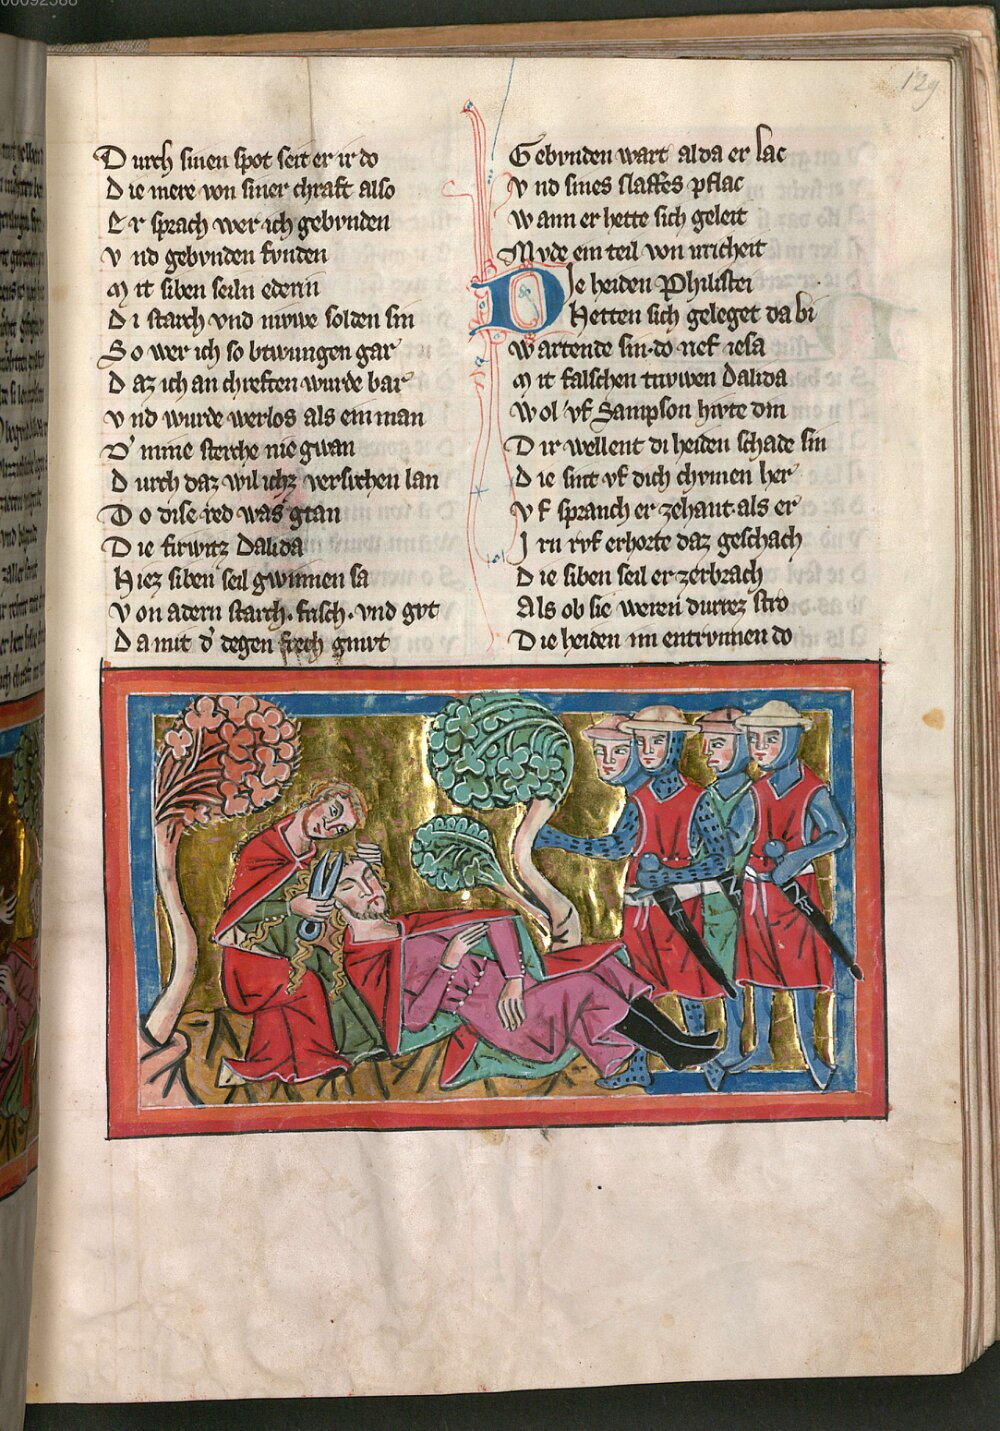 00092568
129
Durch sinen spot seit er ir do
Die mere von siner chraft also
Er sprach wer ich gebvnden
vnd gebvnden fvnden
Mit siben seiln ederin
Di starch vnd niwe solden sin
So wer ich so btwungen gar
Daz ich an chreften wurde bar
vnd wurde werlos als ein man
D' mine sterche nie gwan
Durch daz wil ichz versvchen lan
Do dise red was gtan
Die firwitz Dalida
Hiez siben seil gwinnen sa
Von adern starch. frisch. vnd gvt
Da mit d' degen frech gnvt
Gebvnden wart alda er lac
vnd sines slaffes pflac
Wann er hette sich geleit
Mvde ein teil von vricheit
Die heiden Philistei
Hetten sich geleget da bi
Wartende sin. do rief iesa
Mit falschen triwen Dalida
Wol vf Sampson hvte din
Dir wellent di heiden schade sin
Die sint vf dich chvmen her
Vf spranch er zehant. als er
Irn rvf erhorte daz geschach
Die siben seil er zerbrach
Als ob sie weren durrez stro
Die heiden im entrvnnen do